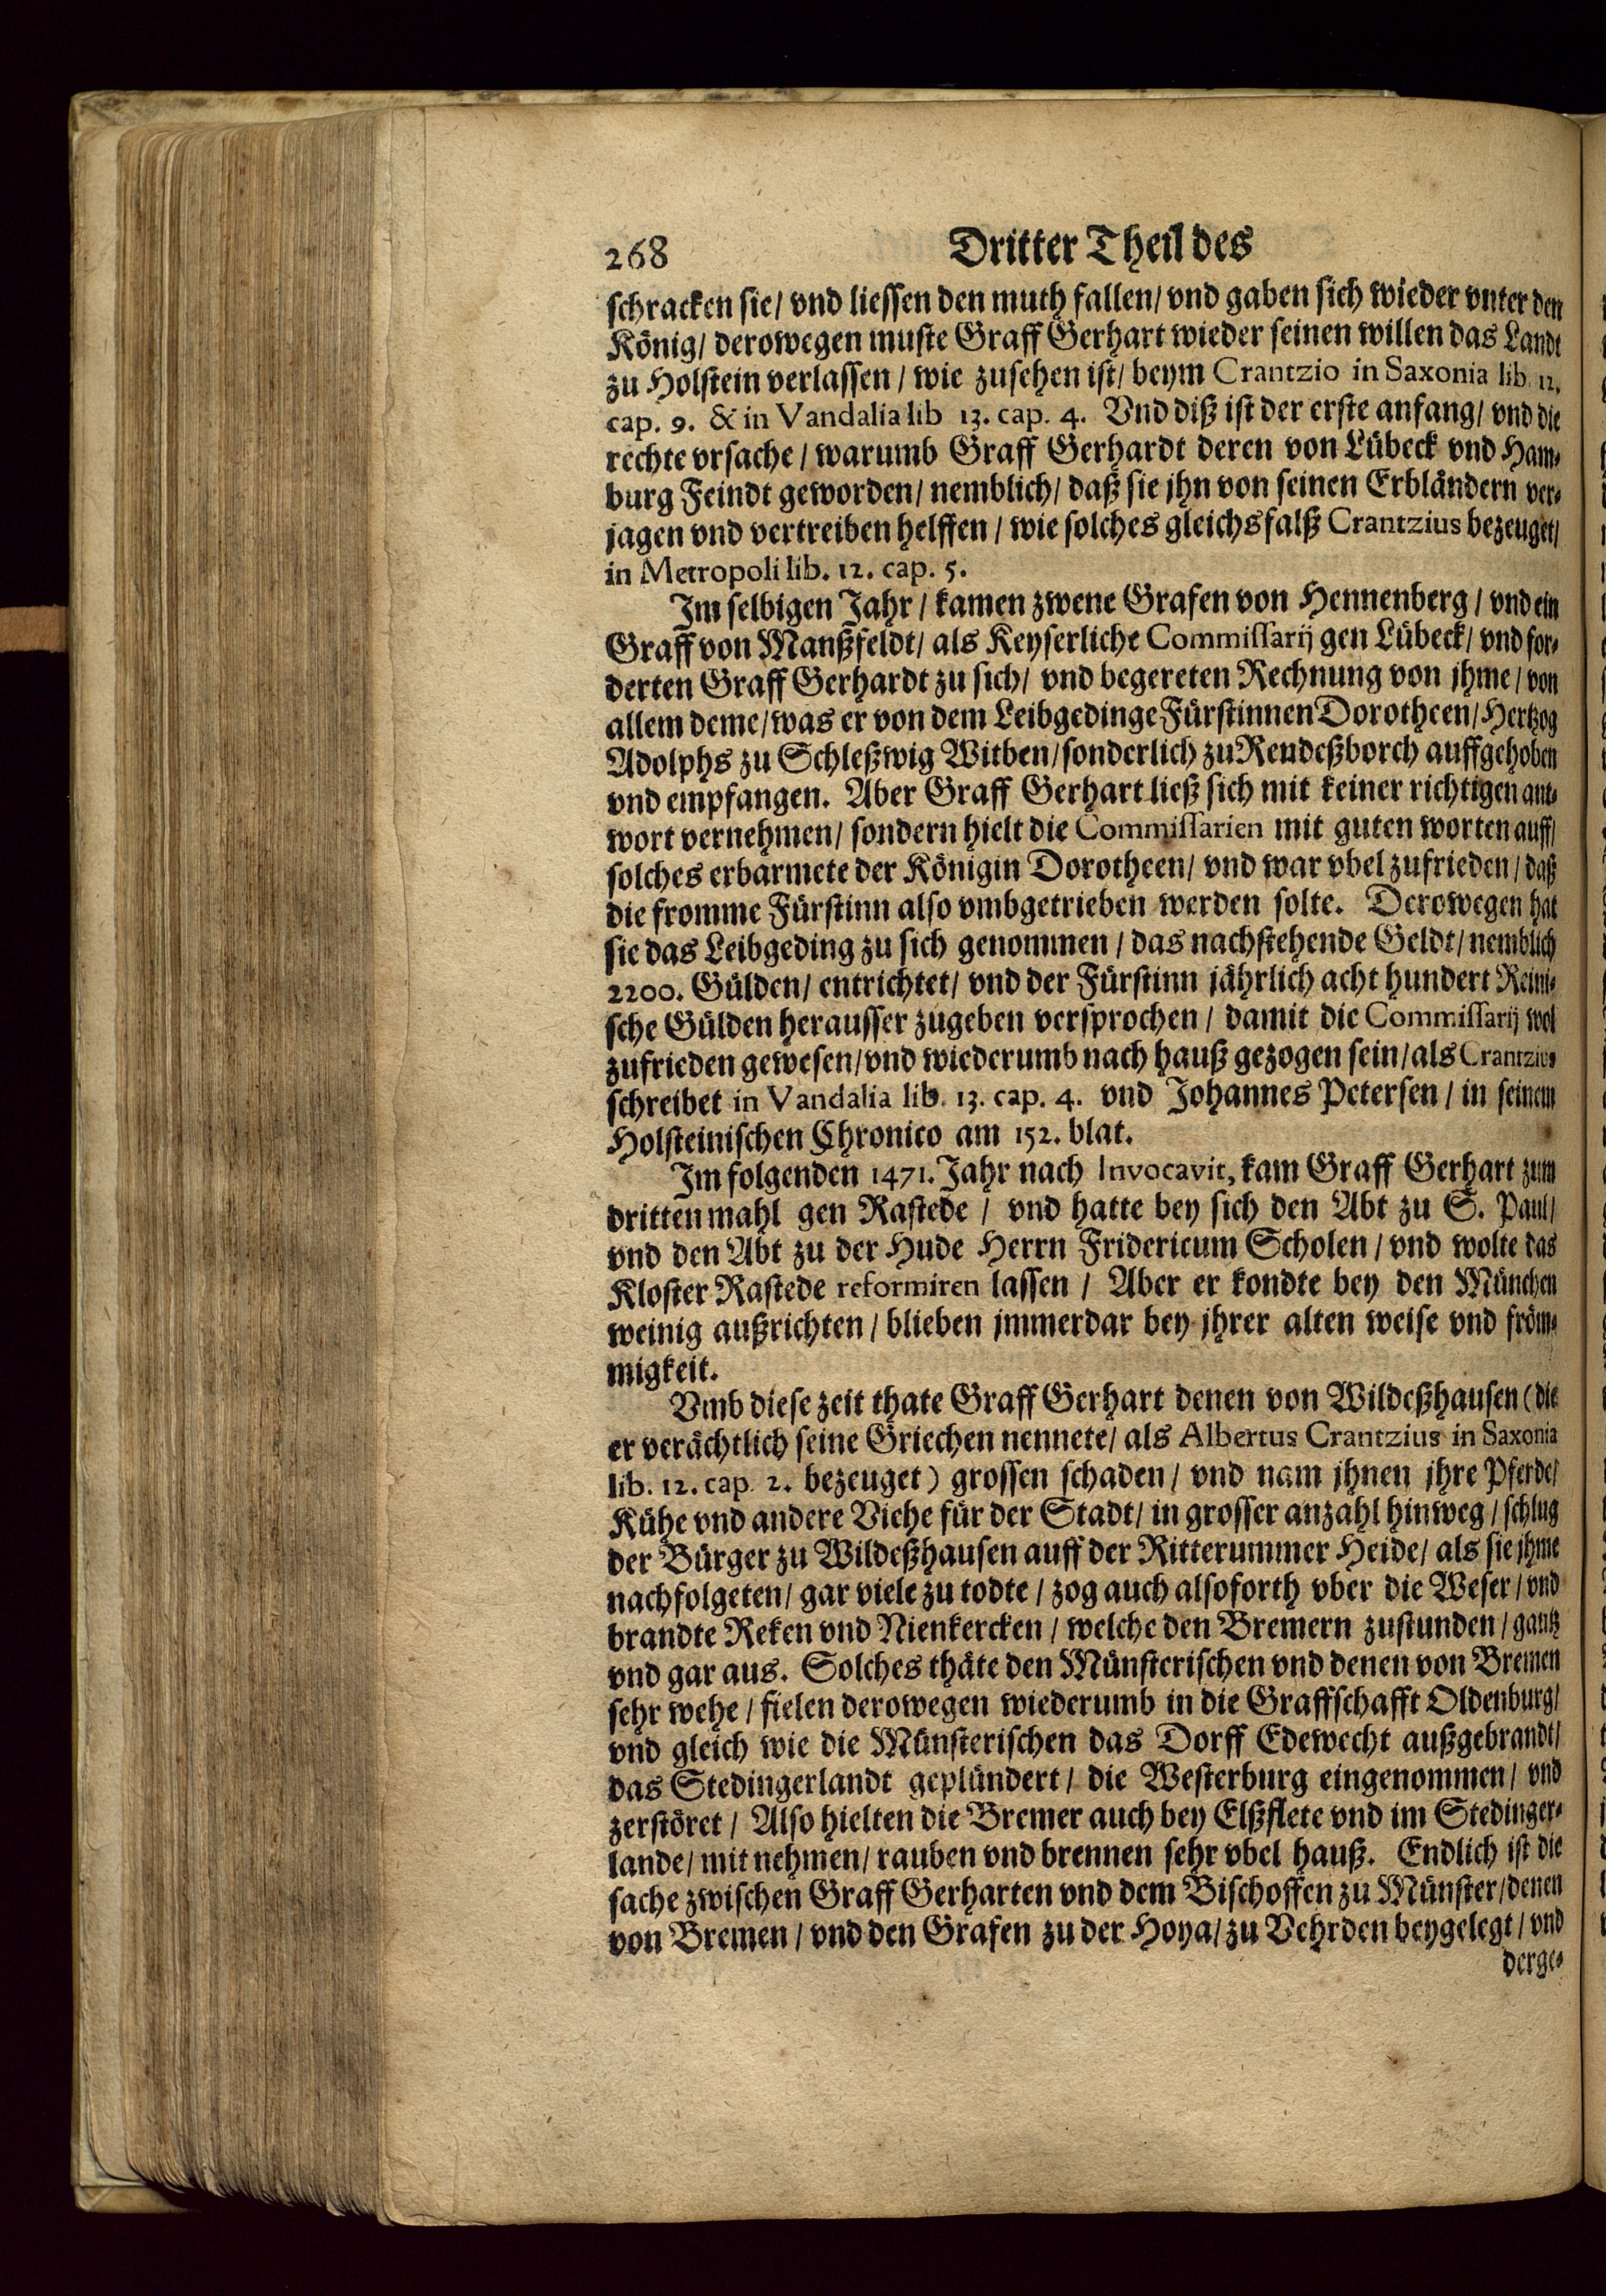 268 Dritter Theil des
schracken sie/ vnd liessen den muth fallen/ vnd gaben sich wieder vnter den
König/ derowegen muste Graff Gerhart wieder seinen willen das Landt
zu Holstein verlassen / wie zusehen ist/ beym Crantzio in Saxonia lib. 12.
cap. 9. & in Vandalia lib 13. cap. 4. Vnd diß ist der erste anfang/ vnd die
rechte vrsache / warumb Graff Gerhardt deren von Lübeck vnd Ham-
burg Feindt geworden/ nemblich/ daß sie jhn von seinen Erbländern ver-
jagen vnd vertreiben helffen / wie solches gleichsfalß Crantzius bezeuget/
in Metropoli lib. 12. cap. 5.
Im selbigen Jahr / kamen zwene Grafen von Hennenberg / vnd ein
Graff von Manßfeldt/ als Keyserliche Commissarij gen Lübeck/ vnd for-
derten Graff Gerhardt zu sich/ vnd begereten Rechnung von jhme / von
allem deme/ was er von dem Leibgedinge Fürstinnen Dorotheen/ Hertzog
Adolphs zu Schleßwig Witben/ sonderlich zu Rendeßborch auffgehoben
vnd empfangen. Aber Graff Gerhart ließ sich mit keiner richtigen ant-
wort vernehmen/ sondern hielt die Commissarien mit guten worten auff/
solches erbarmete der Königin Dorotheen/ vnd war vbel zufrieden / daß
die fromme Fürstinn also vmbgetrieben werden solte. Derowegen hat
sie das Leibgeding zu sich genommen / das nachstehende Geldt/ nemblich
2200. Gülden/ entrichtet/ vnd der Fürstinn jährlich acht hundert Reini-
sche Gülden herausser zugeben versprochen / damit die Commissarij wol
zufrieden gewesen/ vnd wiederumb nach hauß gezogen sein/ als Crantzius
schreibet in Vandalia lib. 13. cap. 4. vnd Johannes Petersen / in seinem
Holsteinischen Chronico am 152. blat.
Im folgenden 1471. Jahr nach Invocavit, kam Graff Gerhart zum
dritten mahl gen Rastede / vnd hatte bey sich den Abt zu S. Paul/
vnd den Abt zu der Hude Herrn Fridericum Scholen / vnd wolte das
Kloster Rastede reformiren lassen / Aber er kondte bey den München
weinig außrichten / blieben jmmerdar bey jhrer alten weise vnd fröm-
migkeit.
Vmb diese zeit thate Graff Gerhart denen von Wildeßhausen (die
er verächtlich seine Griechen nennete/ als Albertus Crantzius in Saxonia
lib. 12. cap. 2. bezeuget) grossen schaden / vnd nam jhnen jhre Pferde/
Kühe vnd andere Viehe für der Stadt/ in grosser anzahl hinweg / schlug
der Bürger zu Wildeßhausen auff der Ritterummer Heide/ als sie jhme
nachfolgeten/ gar viele zu todte / zog auch alsoforth vber die Weser / vnd
brandte Reken vnd Nienkercken / welche den Bremern zustunden / gantz
vnd gar aus. Solches thäte den Münsterischen vnd denen von Bremen
sehr wehe / fielen derowegen wiederumb in die Graffschafft Oldenburg/
vnd gleich wie die Münsterischen das Dorff Edewecht außgebrandt/
das Stedingerlandt geplündert / die Westerburg eingenommen / vnd
zerstöret / Also hielten die Bremer auch bey Elßflete vnd im Stedinger-
lande/ mit nehmen/ rauben vnd brennen sehr vbel hauß. Endlich ist die
sache zwischen Graff Gerharten vnd dem Bischoffen zu Münster/ denen
von Bremen / vnd den Grafen zu der Hoya/ zu Vehrden beygelegt / vnd
derge-